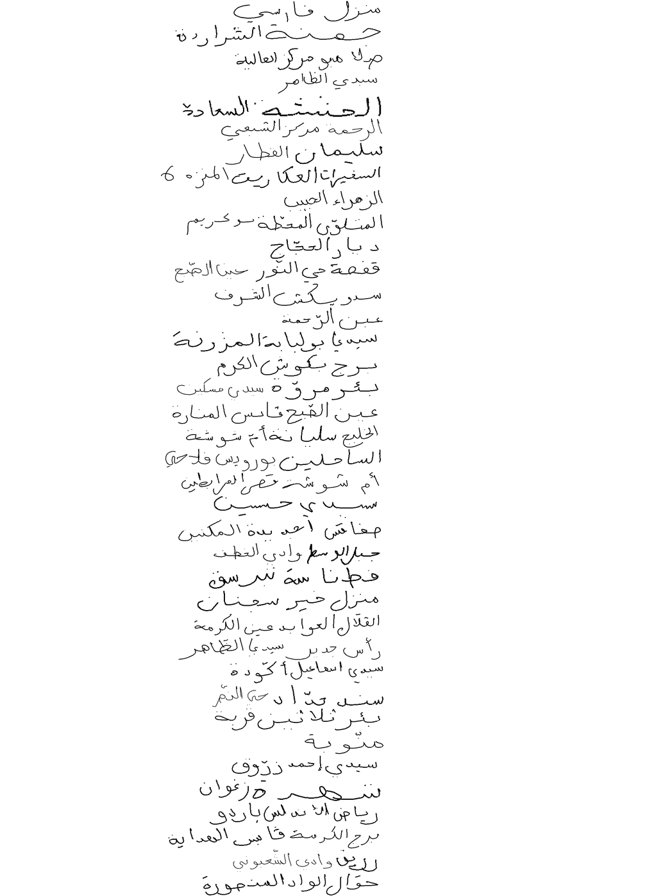 منزل فارسي
حمنة الشراردة
صلامبو مركز العالية
سيدي الظاهر
الحنشة السعادة
الرحمة مركز الشعبي
سليمان القطار
السفيرات العكاريت المنزه 6
الزهراء الحبيب
المتلوّي المحطّة
ديار الحجّاج
قفصة حي النّور
الشرف
عين الرّحمة
سيدي بولبابة المزرنة
برج بكوش الكرم
بئر مروّة سيدي مسكين
عين الضّبع قابس المنارة
الخليج سليانة أم شوشة
الساحلين بورويس فلاحي
أم شوشة قصر المرابطين
سيدي حسين
صفاقس أحمد بدة المكنين
جبل الوسط وادي العطف
قطناسة شرسق
منزل خير سجنان
القلال العوابد عين الكرمة
رأس جدير سيدي الظّاهر
سيدي اسماعيل أكّودة
سند حدّاد
بئر ثلاثين قرية
منّوبة
سيدي أحمد زرّوق
زغوان
رياض الأندلس باردو
برج الكرمة قابس الهداية
وادي
حوّال الواد المنصورة